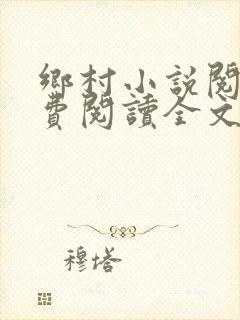 鄉村小說閱
費閱讀全文
穆塔